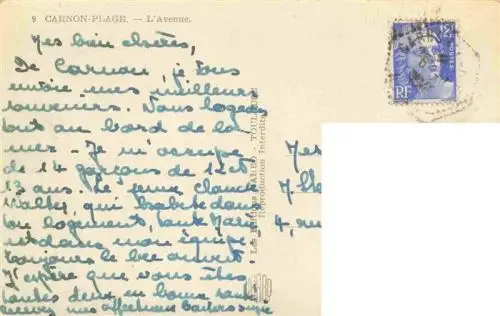 9 CARNON-PLAGE. — L'Avenue.
Mes bien chères,
De Carnon, je vous
envoie mes meilleurs
souvenirs. Nous logeons
tout au bord de la
mer. Je m'occupe
de 14 garçons de 12 et
13 ans. Le jeune Claude
qui habite dans
ton logement, tante Marie,
est dans mon équipe.
Toujours le bec ouvert.
J'espère que vous êtes
toutes deux en bonne santé
recevez mes affectueux baisers
Mes
4, rue
TOULOUSE
Reproduction Interdite
12F
POSTES
RF